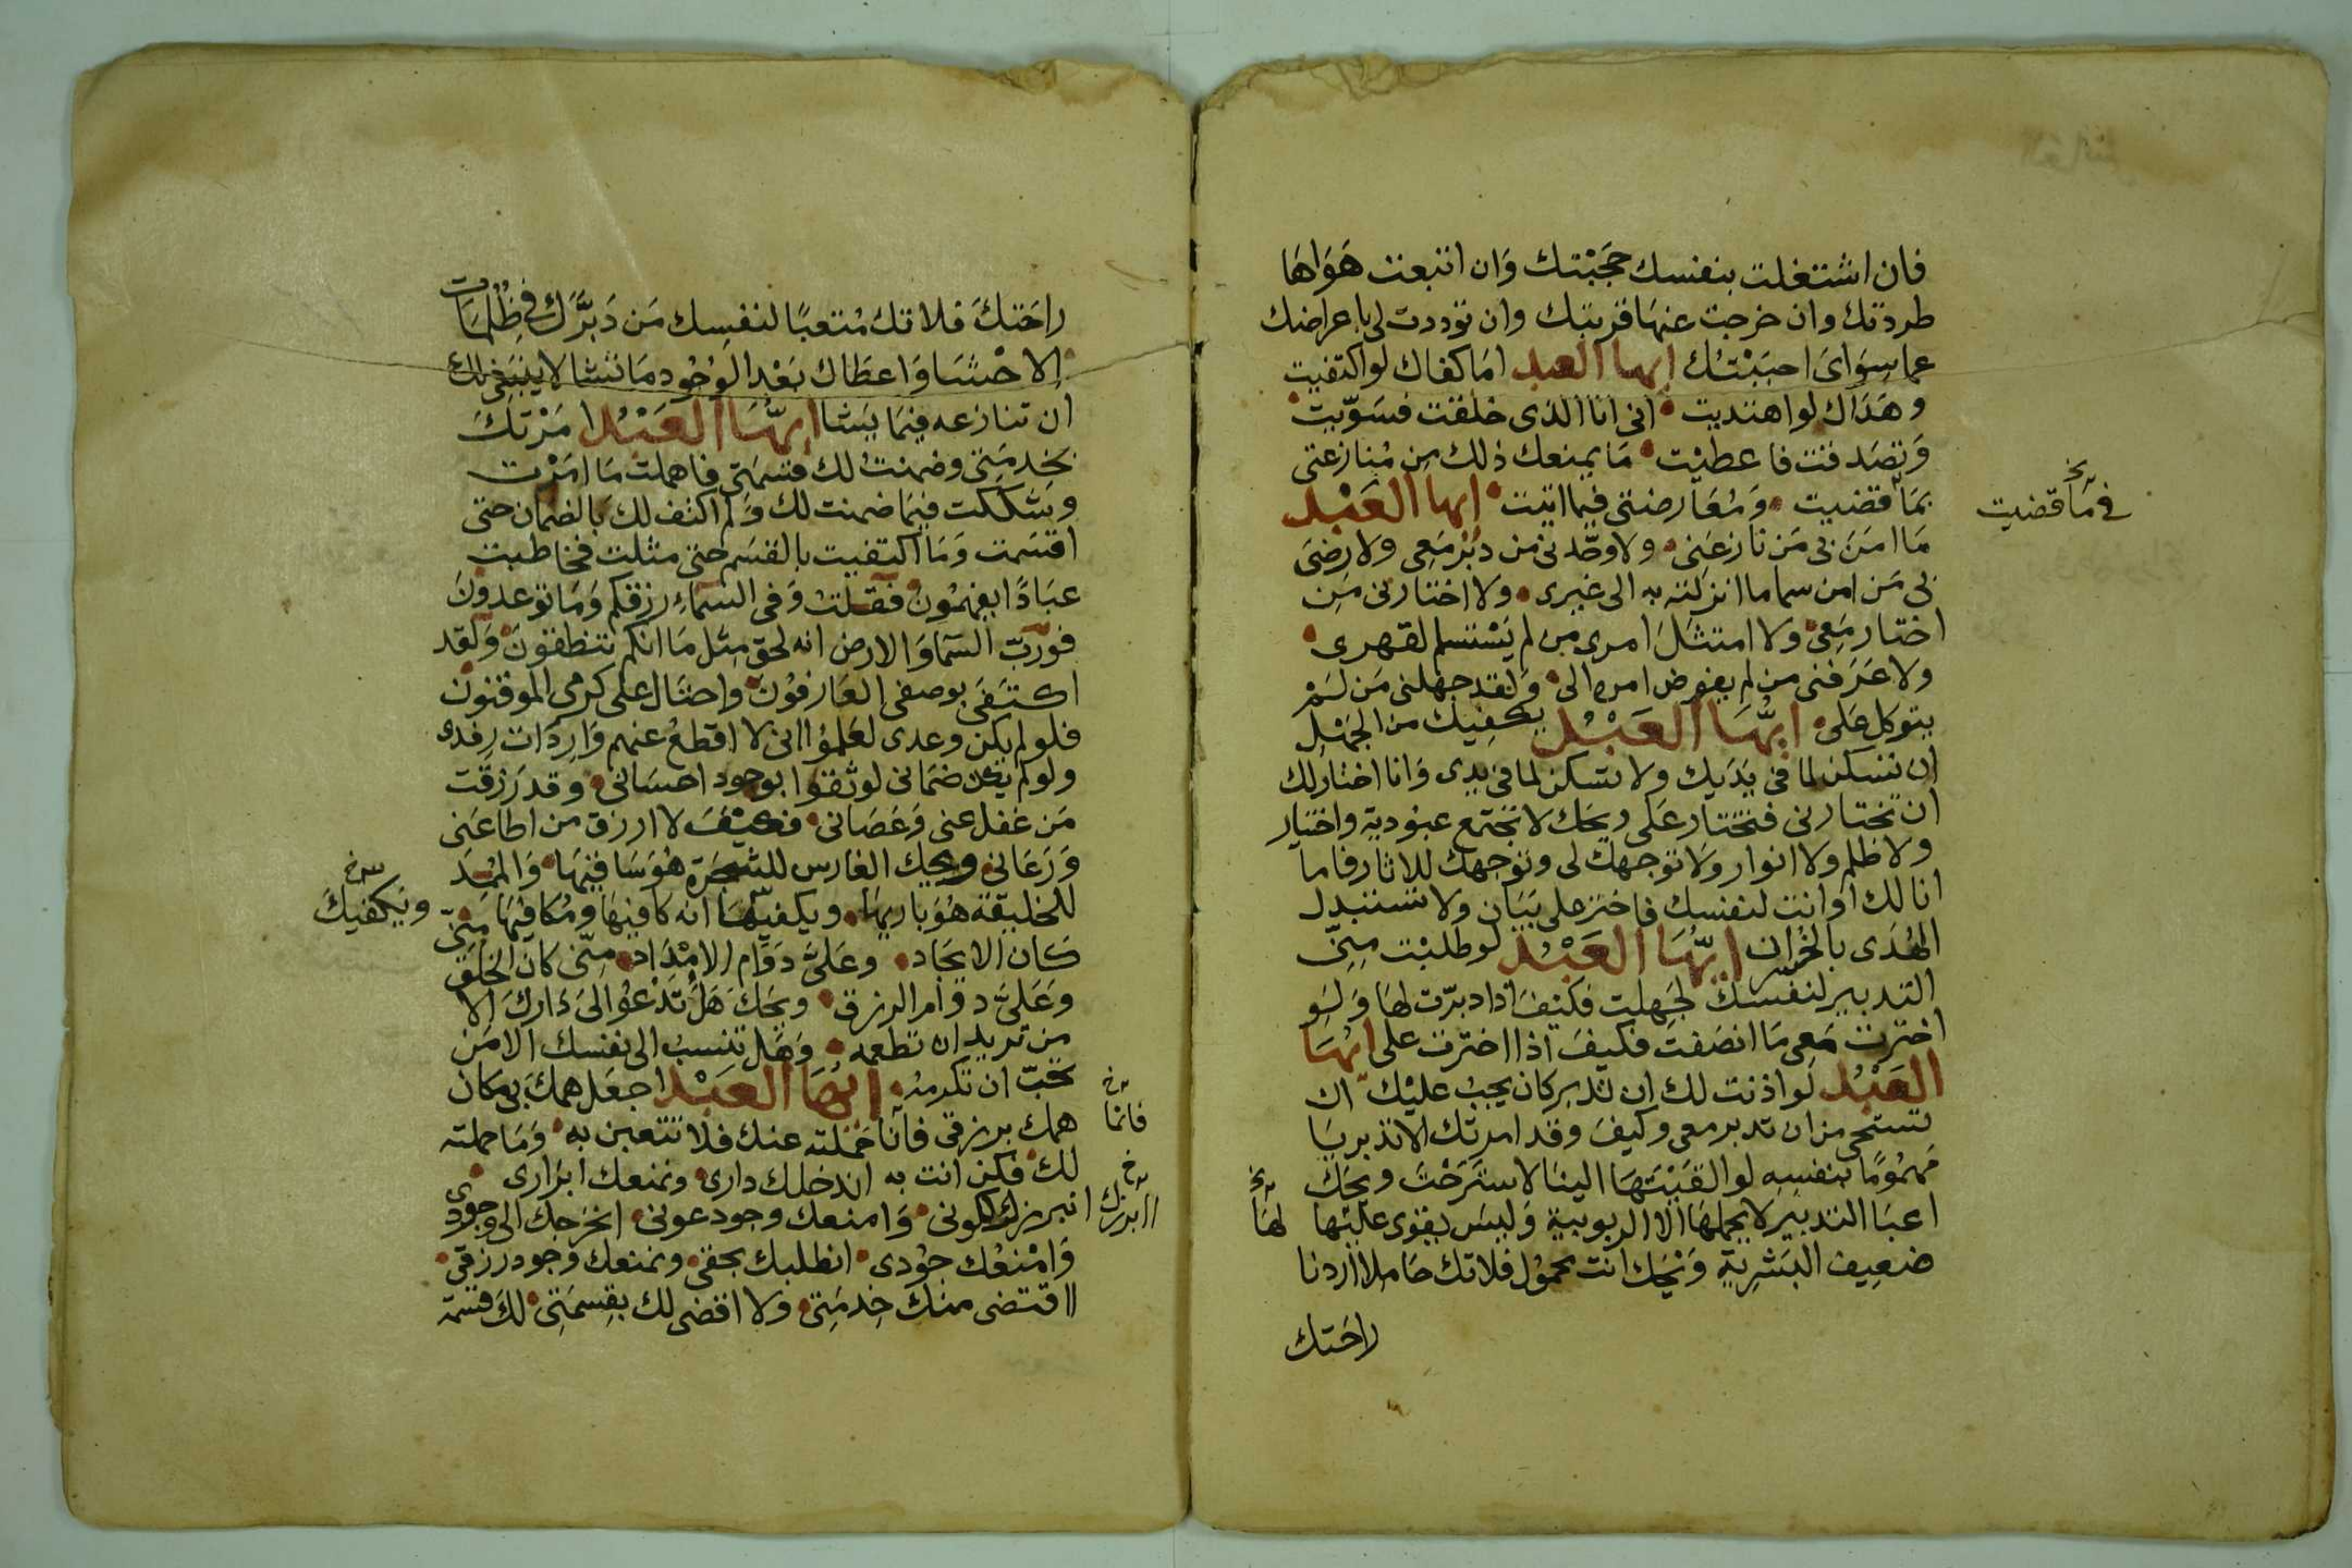 فان اشتغلت بنفسك حجَبْتك وَان اتبعت هَوَاهَا
طردتك وان خرجت عنهَا قربتك وان توددت لى باعراضك
عما سِوَاىَ احبَبْتُك ايها العبد امَا كفاك لو اكتفيت
وهَدَاك لو اهتديت انى انا الذى خلقت فسَوّيت
وَتصَدقت فاعطيْت مَا يمنعك ذلك مِن مُنازعتى
بمَا قضيت وَمُعَارضتى فيما اتيت ايها العَبْد
فى مَا قضيت
مَا امَنَ بى مَن نازعَنى ولا وحّدنى من دبّر مَعِى ولا رضىَ
بى مَن امن سما ما انزلته به الى غيرى ولا اختارنى مَن
اختار مَعِى ولا امتثلَ امرى من لم يَسْتسلم لقهرى
ولا عَرَفنى من لم يفوض امره الى وَلقد جهلنى مَن لَمْ
يتوكل عَلى ايُّهَا العَبْدُ يكفيك من الجَهْل
ان تسكن لما فى يَدَيك ولا تسكن لما فى يدى وَانا اختار لك
ان تختارنى فتختار عَلى ويحَك لا تجتمع عبُودية واختيار
ولا ظلم ولا انوار ولا توجهك لى وتوجهك للاثار فاما
انا لك او انت لنفسك فاختر على بَيَان ولا تستبدل
الهُدَى بالخُسران ايُّهَا العَبْدُ لو طلبْت مِنى
التدبير لنفسك لجَهِلت فكيفَ اذا دبّرت لها وَلو
اخترت مَعِى مَا انصَفت فكيفَ اذا اخترت على ايُّهَا
العَبْدُ لو اذنت لك ان تدبر كان يجبُ عليْك ان
تستحى من ان تدبر معى وكيفَ وقد امرتك الا تدبر يَا
مَهمُومًا بنفسِه لو القيْتَهَا الينا لاسترَحْتَ ويحَك
اعبَا التدبير لا يحملهَا الا الربوبية وَليسَ يقوى عليْها
لهَا
ضعيف البَشرِيّة وَيْحَك انت محمُول فلا تك حَامِلا اردنا
راحَتك
راحَتك فلا تك مُتعبًا لنفسِك مَن دَبَّرَك فى ظُلمَات
الاحْشَا وَاعطَاك بَعْد الوُجُود مَا تشا لا يَنبَغى لك
ان تنازعه فِيمَا يَشا ايُّهَا العَبْدُ امَرْتكَ
بخِدمَتى وضمنتُ لك قسمَتى فاهملت مَا امَرْت
وتشككت فيمَا ضمنت لك وَلم اكتف لك بالضمان حتى
اقسَمت وَمَا اكتفيت بالقسَم حتى مثلت فخاطبت
عبَادًا يفهمُون فقلتُ وَفى السمآءِ رزقكم وَمَا توعدُونَ
فورَبّ السّمآ وَالارض انه لحق مِثل مَا انكم تنطقونَ وَلقد
اكتفَى بوصفى العَارفُونَ واحتال على كرمى الموقنون
فلو لم يكن وعدى لعَلمُوا انى لا اقطعُ عنهم وَارِدَات رِفدى
ولو لم يكن ضمَانى لوثقوا بوجود احسَانى وقد رَزقت
مَن غفل عنى وَعَصَانى فكيْفَ لا ارزق من اطاعَنى
وَرَعَانى ويحك الغارس للشجَرَة هُوَ سَاقيهَا وَالمُمد
للخليقة هُوَ باريهَا ويكفيهَا انه كافيهَا ومُكافيهَا مِنى
ويَكفيك
كَان الايجَاد وعَلىّ دَوَام الامْدَاد مِنّى كان الخلق
وَعَلىَّ دوَام الرزق ويحَكَ هَل تَدْعُوا الىَ دَاركَ الا
من تريد ان تطعمه وَهَل تنسبُ الى نفسك الا مَن
تحبّ ان تكرمهُ ايُّهَا العَبْدُ اجعَل همكَ بى مَكان
همك برزقى فانا حَمَلته عنك فلا تتعبن به وَمَا حملته
فانمَا
لك فكن انت به اندخلك دارى ونمنعك ابرَارى
انبرزك لكونى وَامنعك وجود عونى انخرجك الى وجودى
اابرزك
وَامْنعُك جوُدى انطلبك بحقى ونمنعك وجود رزقى
ااقتضى منكَ خِدمَتى ولا اقضى لك بقِسمَتى لكَ قسمَة